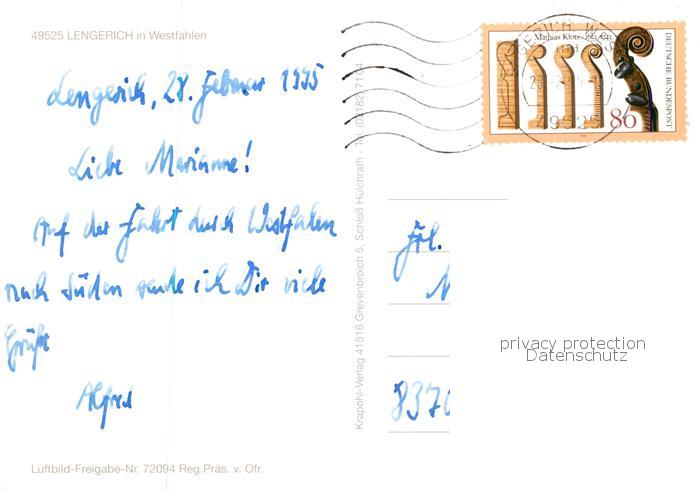 49525 LENGERICH in Westfahlen
Lengerich, 28. Februar 1995
Liebe Marianne!
Auf der Fahrt durch Westfalen
nach Süden sende ich Dir viele
Grüße
Alfred
Luftbild-Freigabe-Nr. 72094 Reg.Präs. v. Ofr.
Krapohl-Verlag 41516 Grevenbroich 5, Schloß Hülchrath - Tel. (02182) 7104
Mathias Klotz
DEUTSCHE BUNDESPOST
86
49525
Frl.
privacy protection
Datenschutz